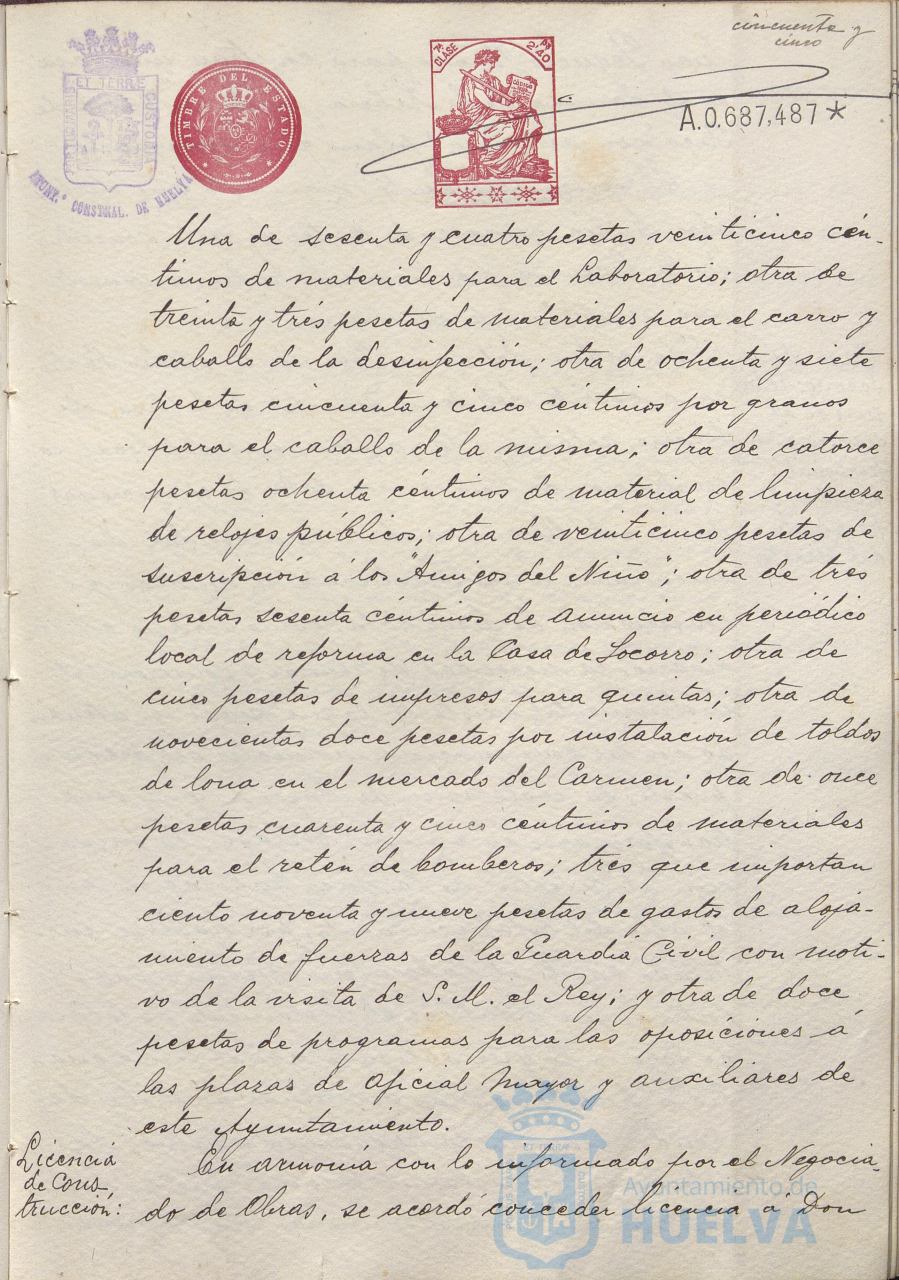 cincuenta y
cinco
ET TERRÆ CUSTODIA
AYUNT.º CONSTNAL. DE HUELVA
TIMBRE DEL ESTADO
7ª CLASE
2'40 PS
A.0.687,487*
Una de sesenta y cuatro pesetas veinticinco cén-
timos de materiales para el Laboratorio; otra de
treinta y trés pesetas de materiales para el carro y
caballo de la desinfección; otra de ochenta y siete
pesetas cincuenta y cinco céntimos por granos
para el caballo de la misma; otra de catorce
pesetas ochenta céntimos de material de limpieza
de relojes públicos; otra de veinticinco pesetas de
suscripción á los "Amigos del Niño"; otra de trés
pesetas sesenta céntimos de anuncio en periódico
local de reforma en la Casa de Socorro; otra de
cinco pesetas de impresos para quintas; otra de
novecientas doce pesetas por instalación de toldos
de lona en el mercado del Carmen; otra de once
pesetas cuarenta y cinco céntimos de materiales
para el retén de bomberos; trés que importan
ciento noventa y nueve pesetas de gastos de aloja-
miento de fuerzas de la Guardia Civil con moti-
vo de la visita de S. M. el Rey; y otra de doce
pesetas de programas para las oposiciones á
las plazas de oficial mayor y auxiliares de
este Ayuntamiento.
Licencia
de cons
trucción:
En armonía con lo informado por el Negocia-
do de Obras, se acordó conceder licencia á Don
Ayuntamiento de
HUELVA